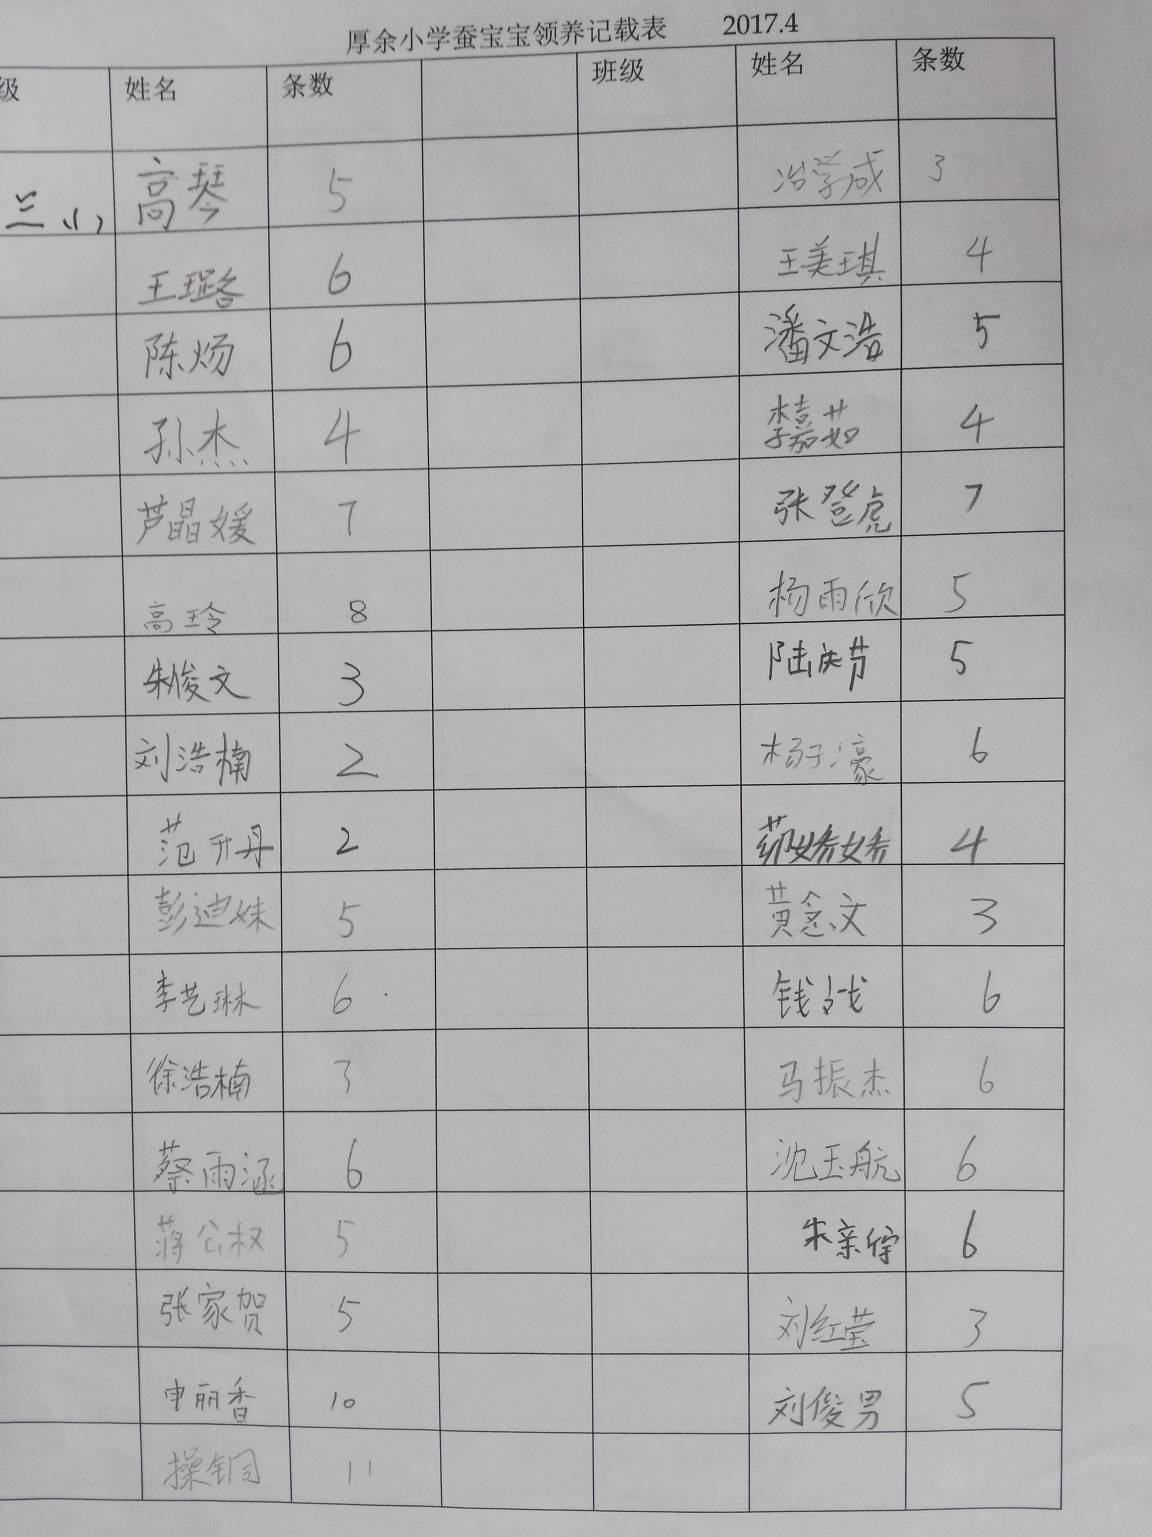 厚余小学蚕宝宝领养记载表 2017.4
级 姓名 条数 班级 姓名 条数
三(1) 高琴 5 冶学成 3
王璐 6 王美琪 4
陈炀 6 潘文浩 5
孙杰 4 李嘉茹 4
芦晶媛 7 张登虎 7
高玲 8 杨雨欣 5
朱俊文 3 陆庆节 5
刘浩楠 2 杨子濠 6
范开丹 2 娇娇 4
彭迪妹 5 黄念文 3
李艺琳 6 钱战 6
徐浩楠 3 马振杰 6
蔡雨涵 6 沈玉航 6
蒋公权 5 朱亲 6
张家贺 5 刘红莹 3
申丽香 10 刘俊男 5
操铜 11